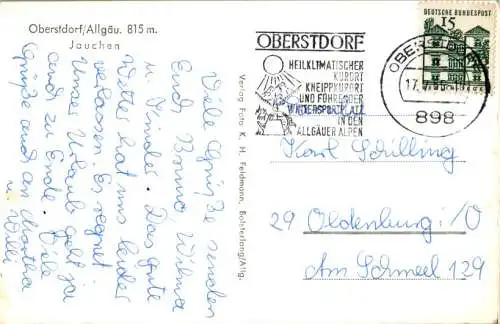 Oberstdorf/Allgäu. 815 m.
Jauchen
Viele Grüße senden
Euch Benno, Wilma
u. Kinder. Das gute
Wetter hat uns leider
verlassen. Es regnet.
Unser Urlaub geht ja
auch zu Ende. Viele
Grüße auch an Martha
u. Willi
Verlag Foto K. H. Feldmann, Bolsterlang/Allg.
OBERSTDORF
HEILKLIMATISCHER
KURORT
KNEIPPKURORT
UND FÜHRENDER
WINTERSPORTPLATZ
IN DEN
ALLGÄUER ALPEN
898
DEUTSCHE BUNDESPOST
15
Karl Schilling
29 Oldenburg i/O
Am Schmeel 129